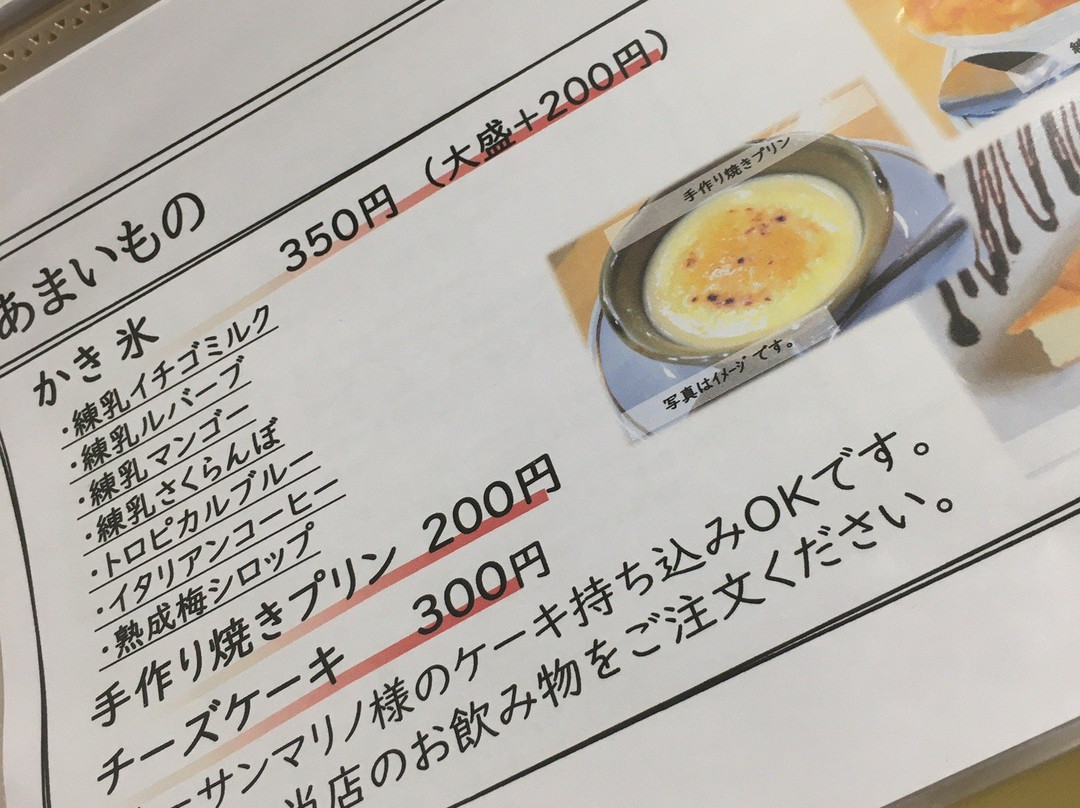 あまいもの
かき氷 350円 (大盛+200円)
・練乳イチゴミルク
・練乳ルバーブ
・練乳マンゴー
・練乳さくらんぼ
・トロピカルブルー
・イタリアンコーヒー
・熟成梅シロップ
手作り焼きプリン 200円
チーズケーキ 300円
サンマリノ様のケーキ持ち込みOKです。
当店のお飲み物をご注文ください。
手作り焼きプリン
写真はイメージです。